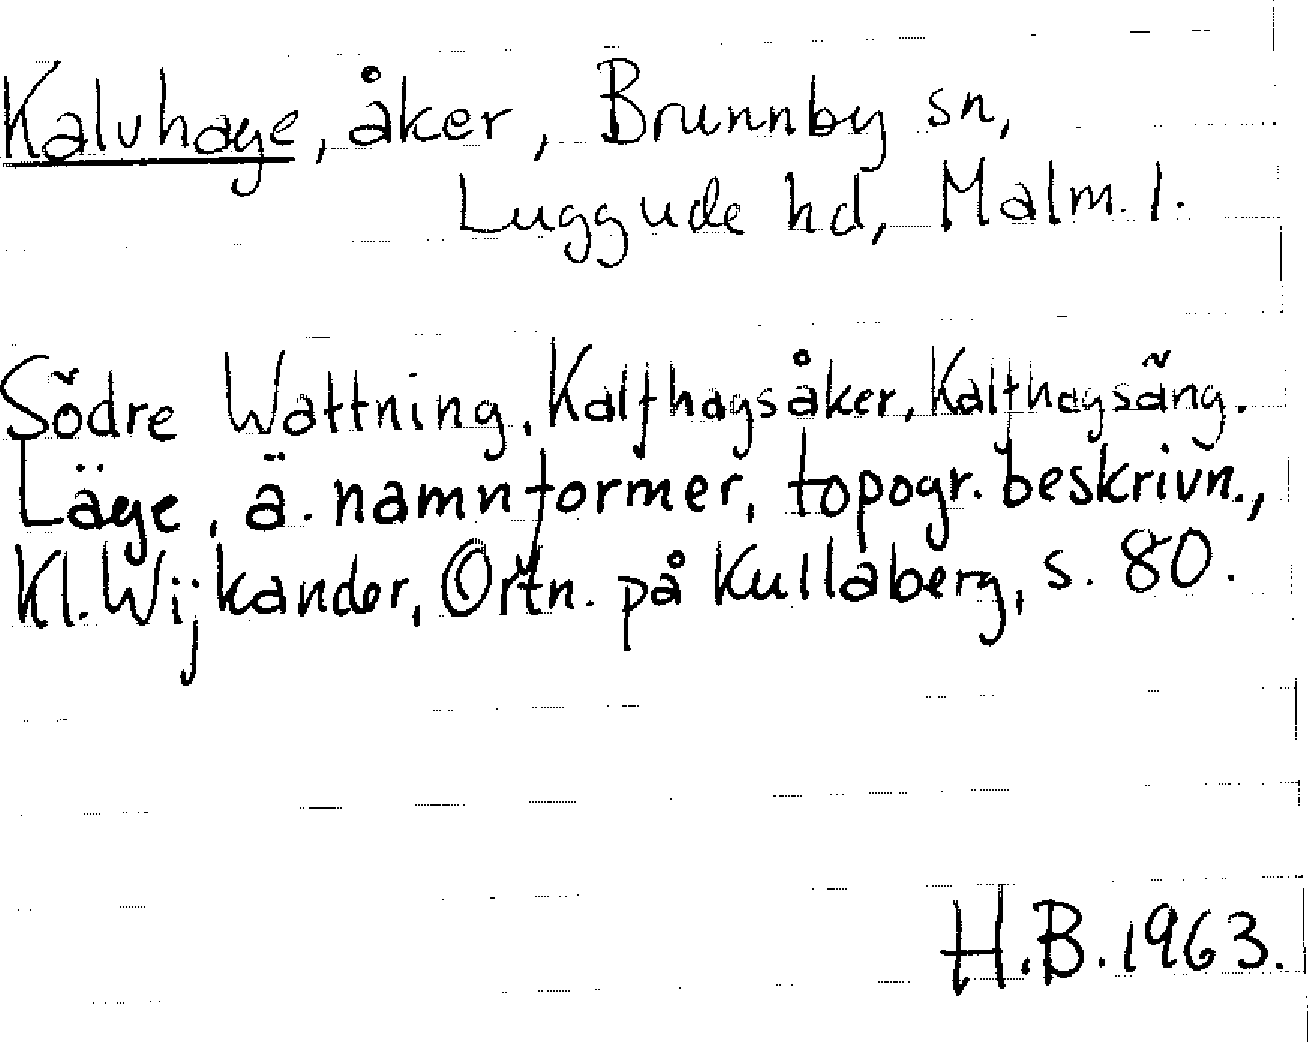 Kalvhage, åker, Brunnby sn,
Luggude hd, Malm. l.
Södre Wattning, Kalfhagsåker, Kalfhagsäng.
Läge, ä. namnformer, topogr. beskrivn.,
Kl. Wijkander, Ortn. på Kullaberg, s. 80.
H.B. 1963.